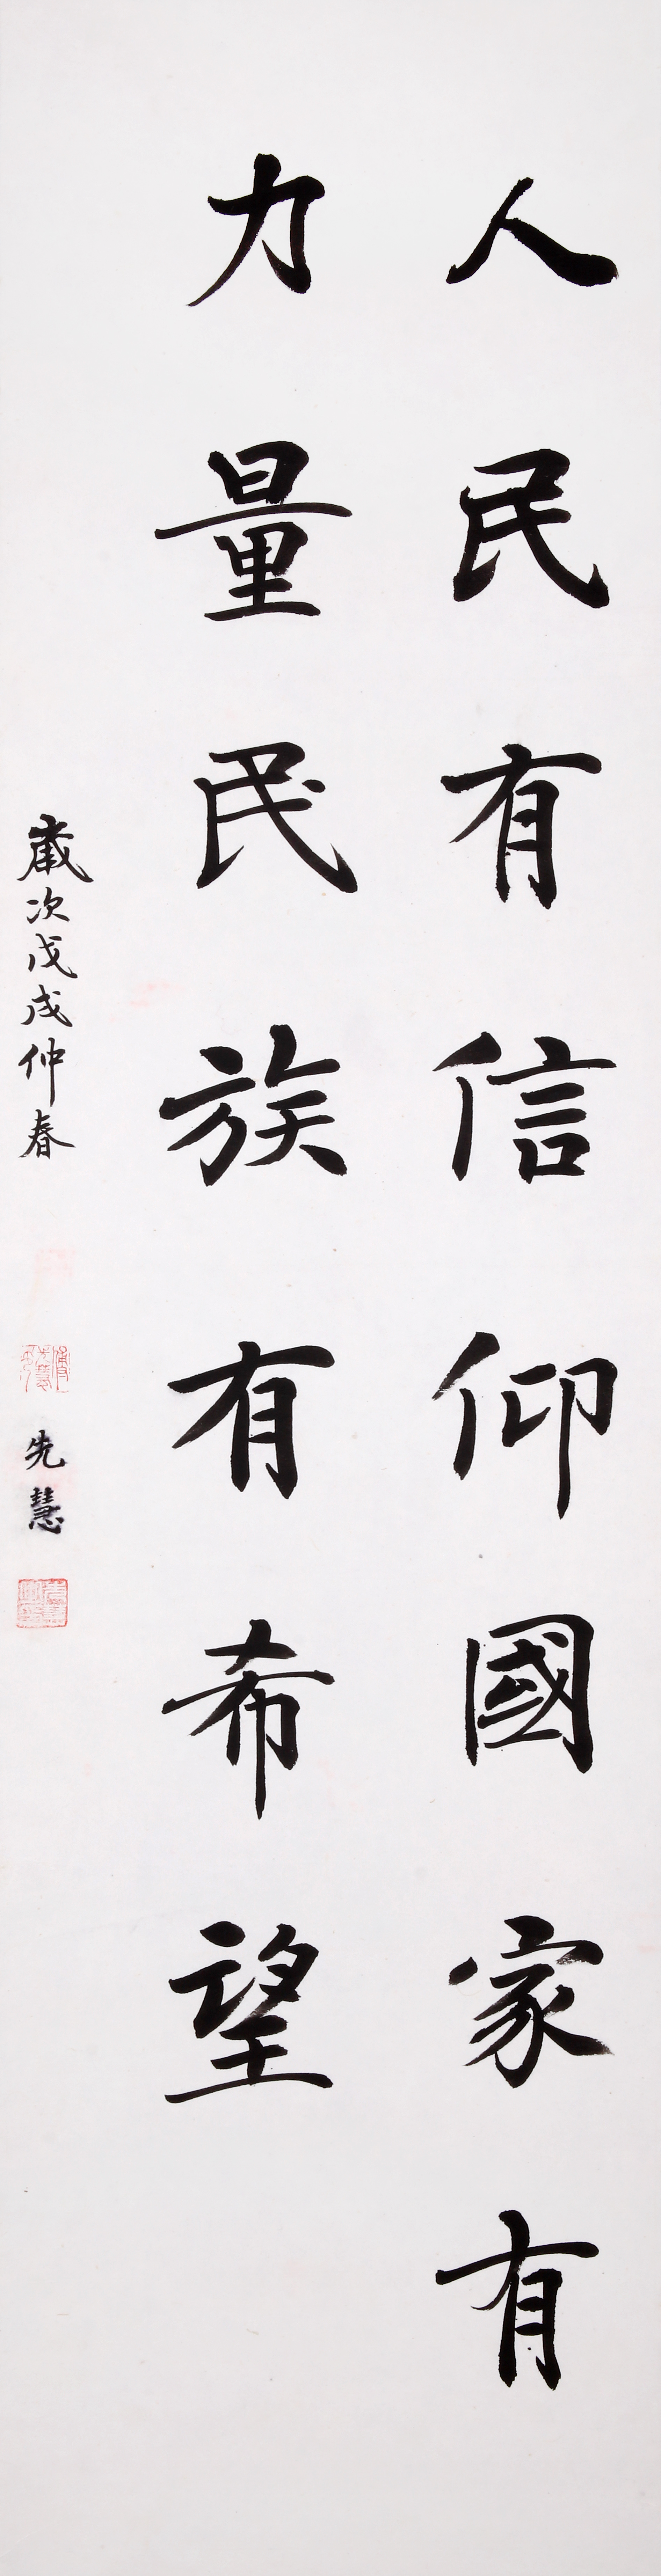 人民有信仰國家有
力量民族有希望
歲次戊戌仲春
先慧